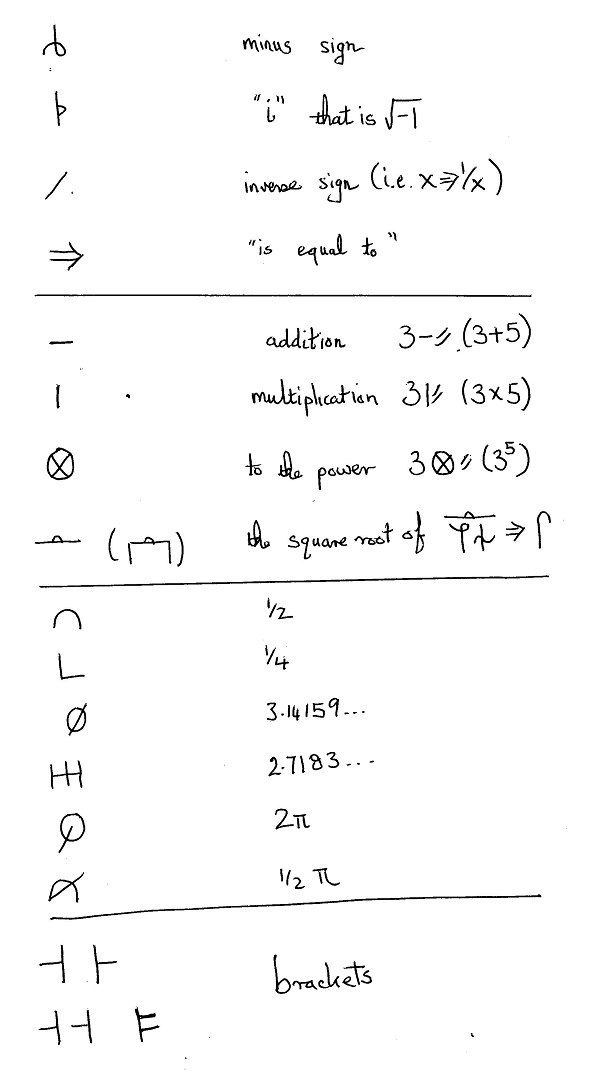 minus sign
"i" that is √-1
/ inverse sign (i.e. x ⇒ 1/x)
⇒ "is equal to"
— addition (3+5)
| multiplication (3×5)
⊗ to the power (3⁵)
the square root of
∩ 1/2
L 1/4
Ø 3.14159...
2.7183...
2π
1/2 π
⊣ ⊢ brackets
⊣⊣ ⊧